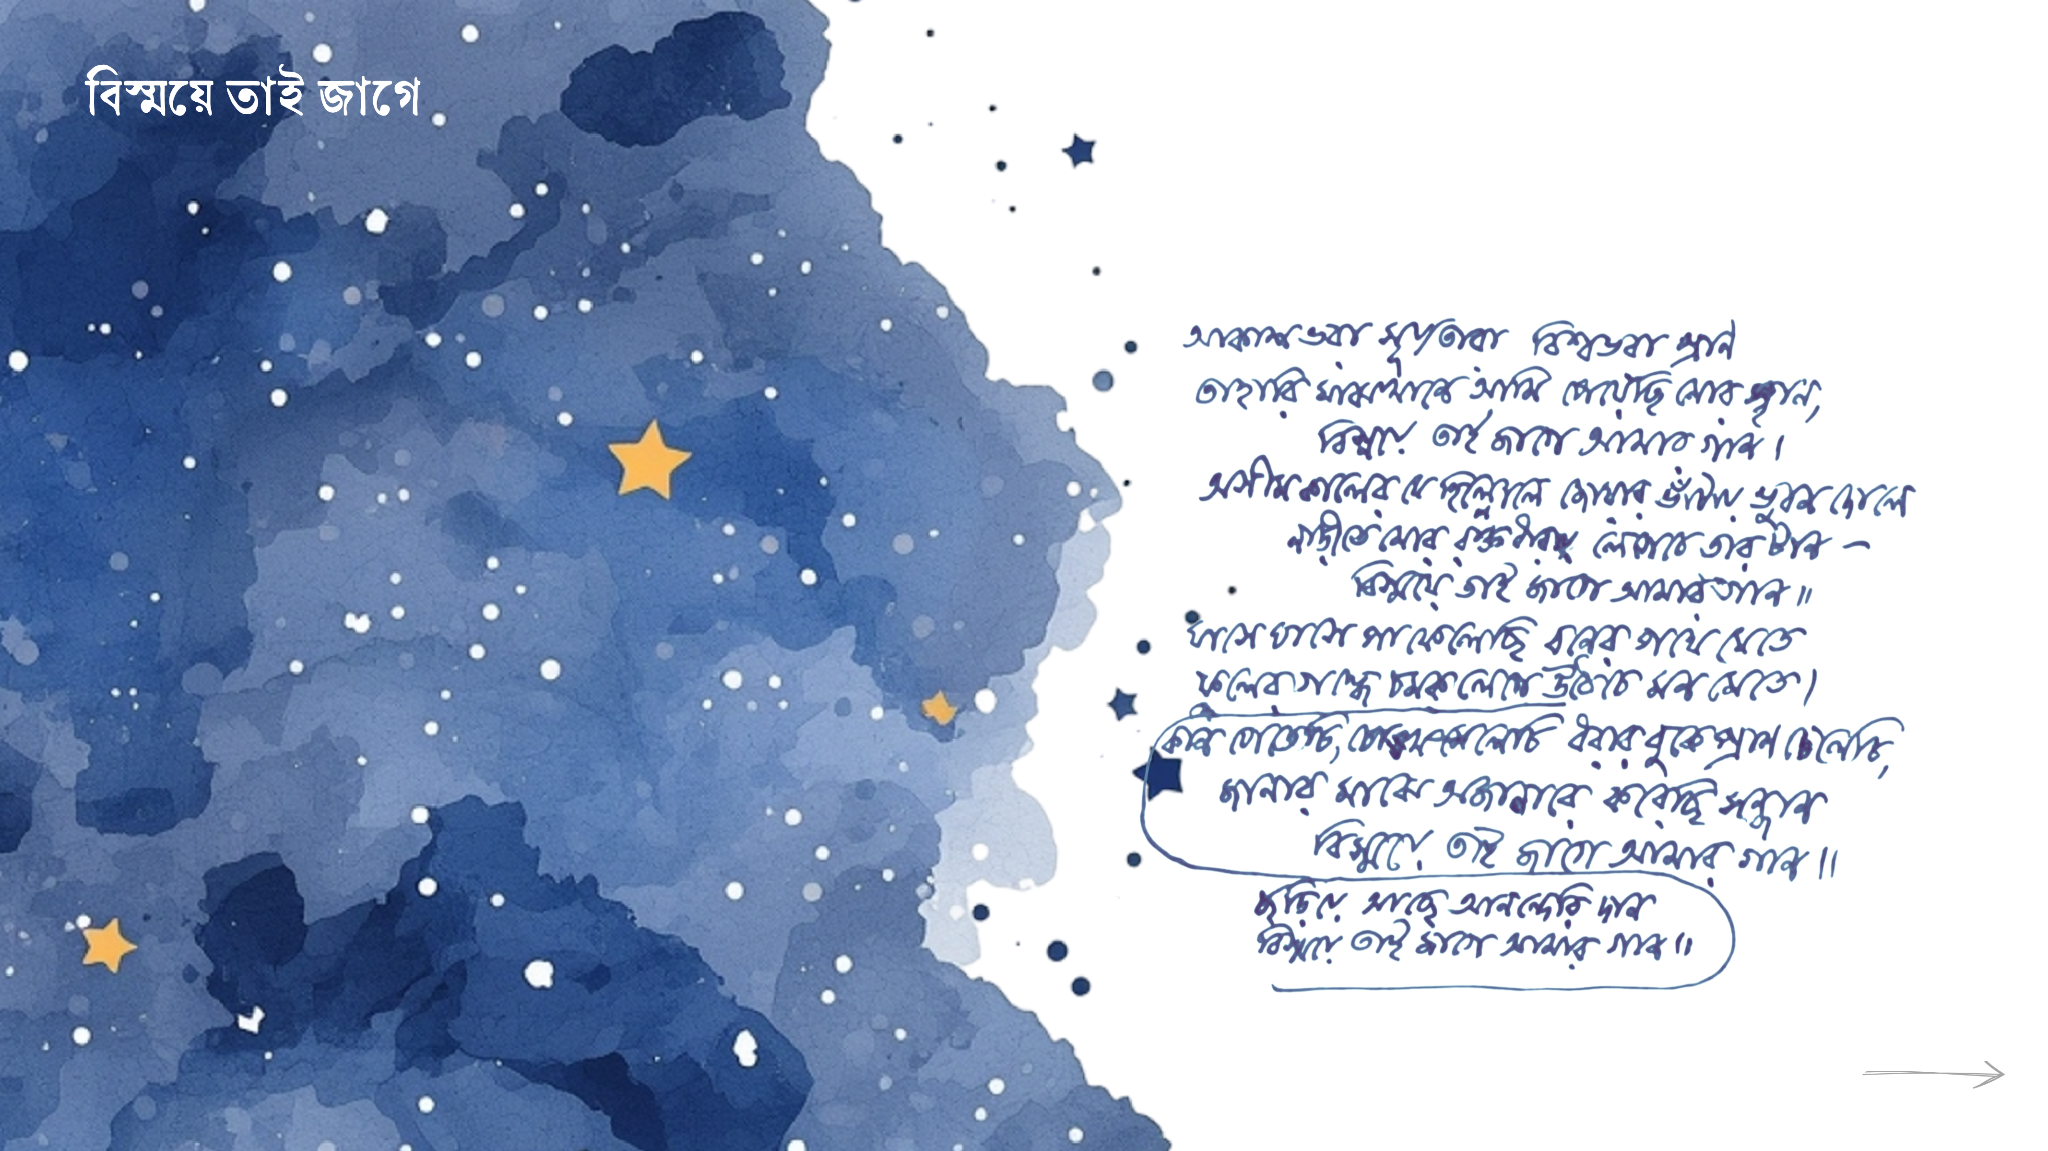 বিস্ময়ে তাই জাগে
আকাশ ভরা সূর্যতারা বিশ্বভরা প্রাণ
তাহারি মাঝখানে আমি পেয়েছি মোর স্থান,
বিস্ময়ে তাই জাগে আমার গান।
অসীম কালের যে হিল্লোলে জোয়ার ভাঁটায় ভুবন দোলে
নাড়ীতে মোর রক্তধারায় লেগেচে তার টান –
বিস্ময়ে তাই জাগে আমার গান॥
ঘাসে ঘাসে পা ফেলেছি বনের পথে যেতে
ফুলের গন্ধে চমক লেগে উঠেচে মন মেতে।
কান পেতেচি, চোখ মেলেচি ধরার বুকে প্রাণ ঢেলেচি,
জানার মাঝে অজানারে করেছি সন্ধান
বিস্ময়ে তাই জাগে আমার গান॥
ছড়িয়ে আছে আনন্দেরি দান
বিস্ময়ে তাই জাগে আমার গান॥